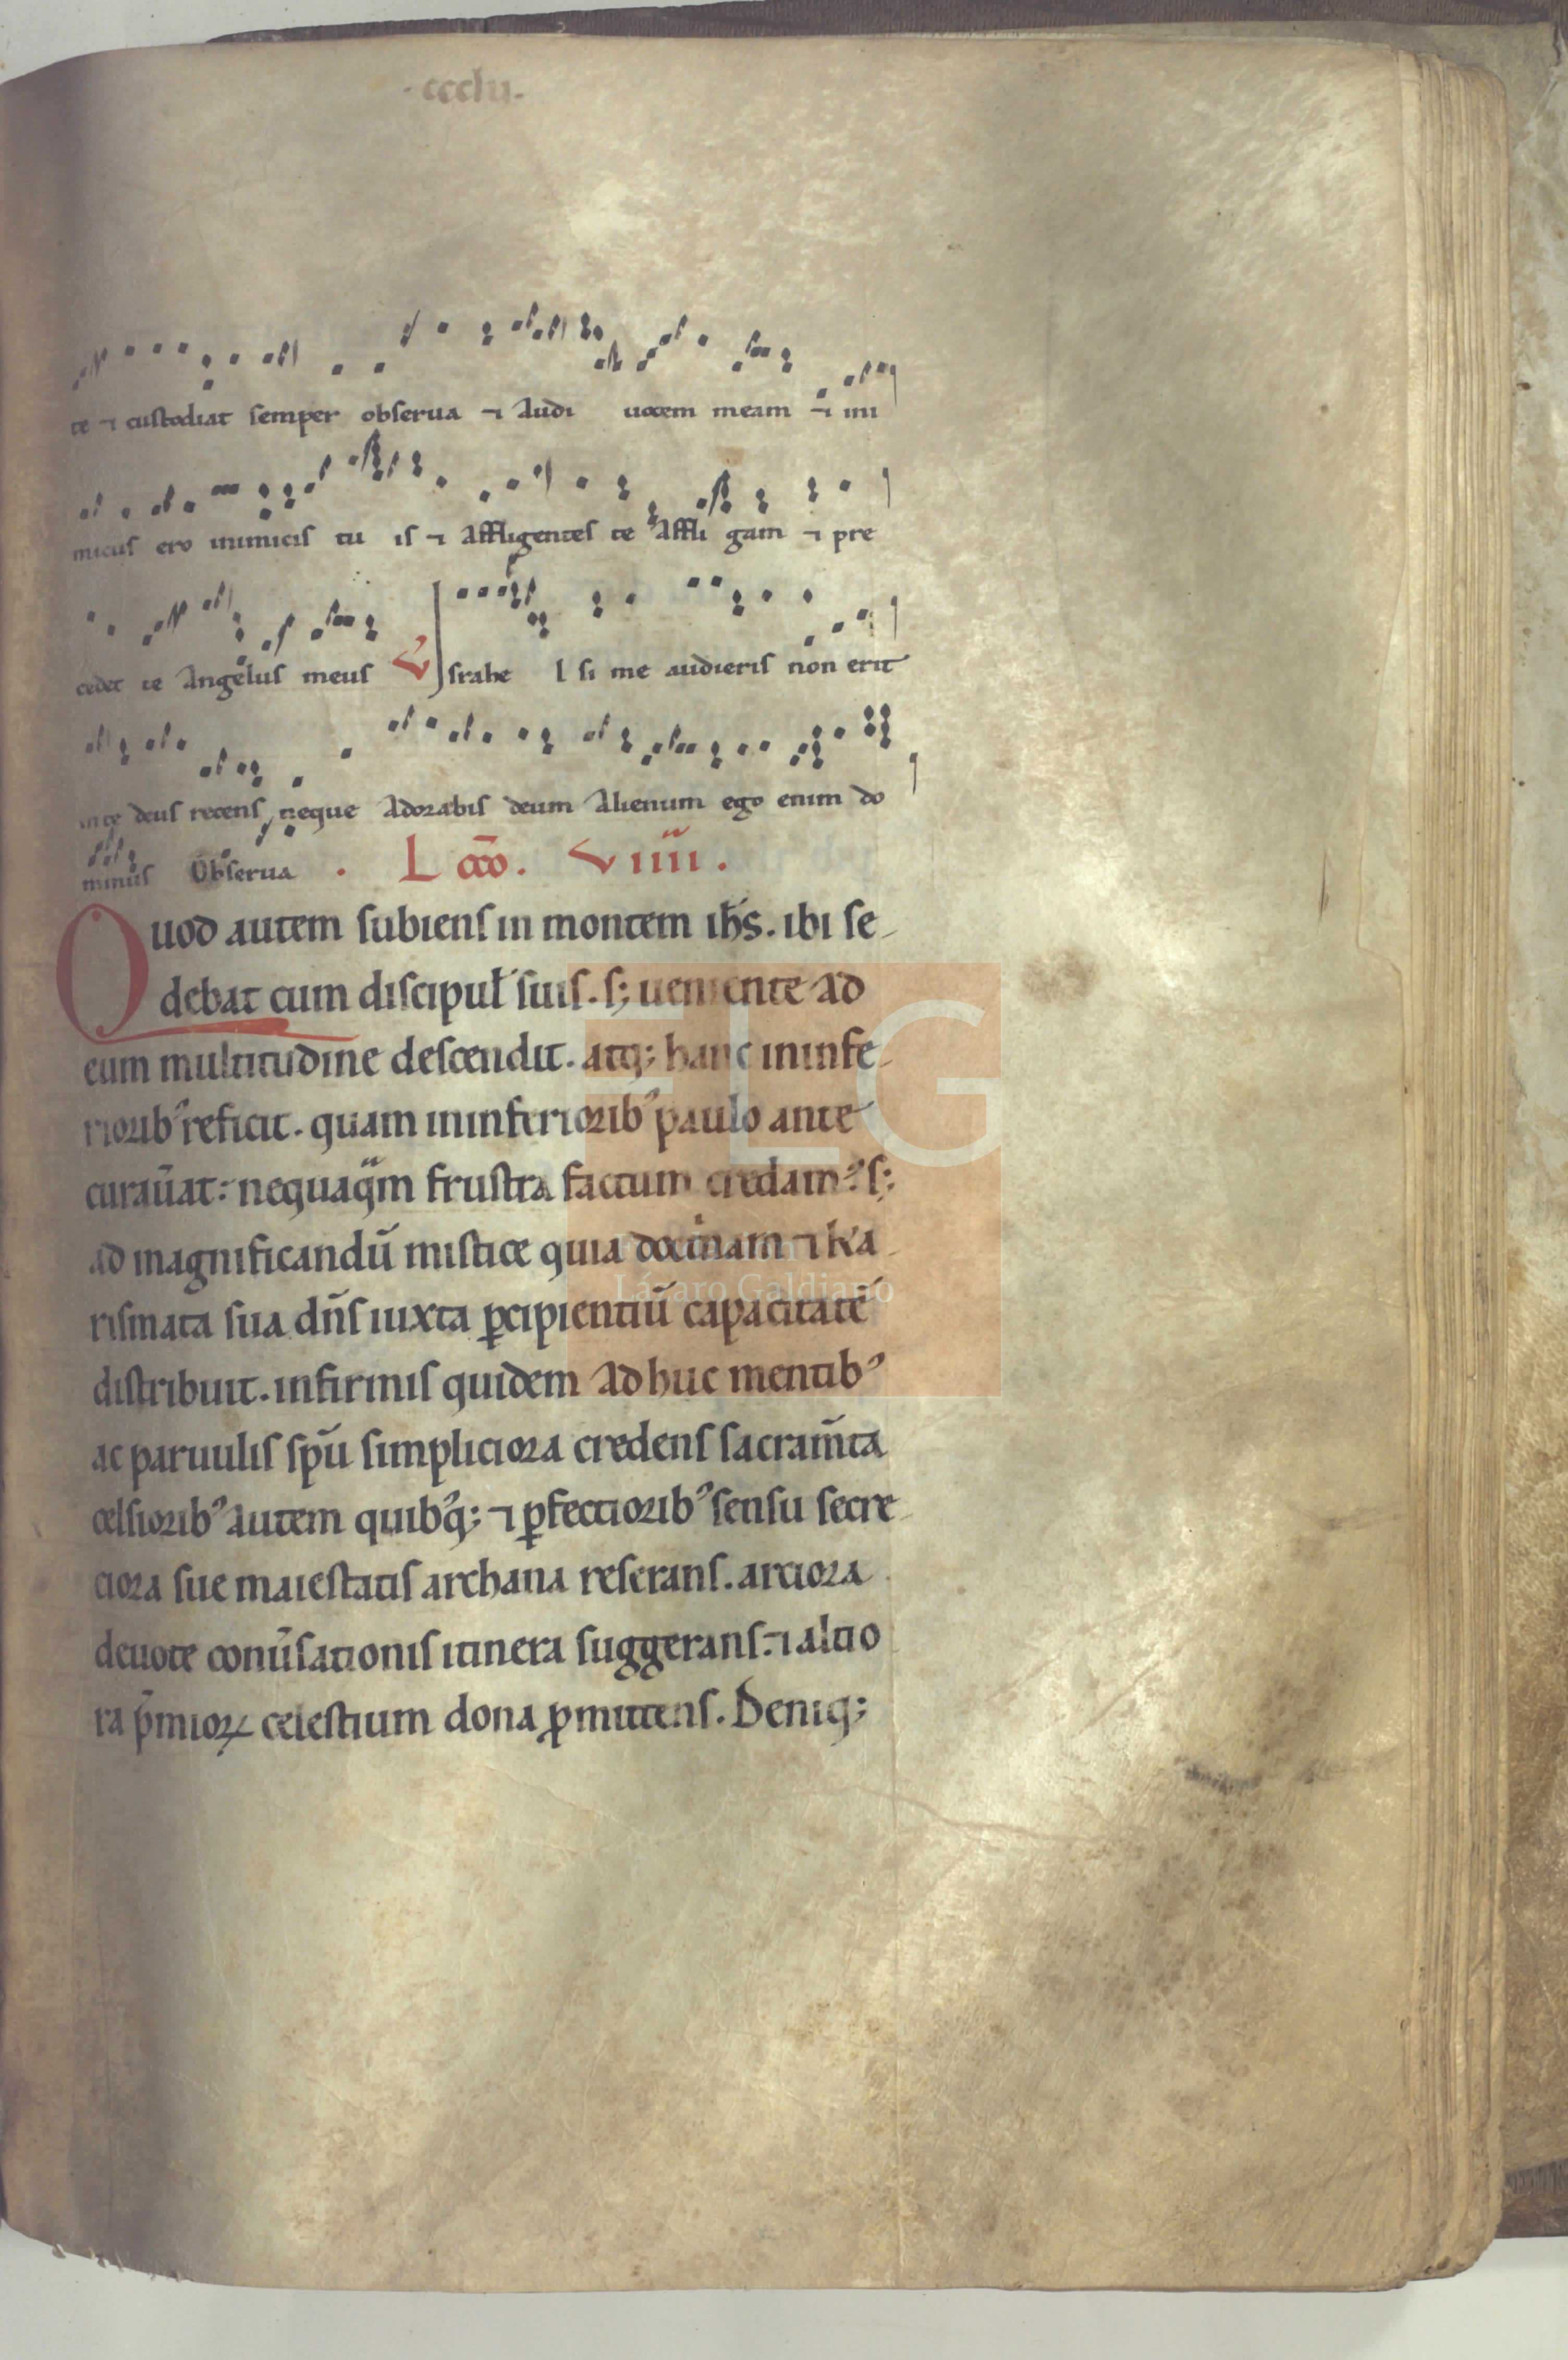 ·ccclii·
te ⁊ custodiat semper obserua ⁊ Audi uocem meam ⁊ ini
micus ero inimicis tu is ⁊ Affligentes te Affli gam ⁊ pre
cedet te Angelus meus V Israhe l si me audieris non erit
in te deus recens neque Adorabis deum Alienum ego enim do
minus Obserua . Lcco. Viiii.
Quod autem subiens in montem ihs. ibi se
debat cum discipul suis. s; ueniente ad
eum multitudine descendit. atq; hanc in infe
riorib' reficit. quam in inferiorib' paulo ante
curau̅at: nequaq̈m frustra factum credam? s;
ad magnificandu̅ mistice quia doctinam ⁊ ka
rismata sua dn̅s iuxta ꝑcipientiu̅ capacitate̅
distribuit. infirmis quidem ad huc mentib'
ac paruulis spu̅ simpliciora credens sacram̅ta
celsiorib' autem quib'q; ⁊ ꝑfectiorib' sensu secre
ciora sue maiestatis archana reserans. arciora
deuote conu̅sationis itinera suggerans. ⁊ altio
ra p̅mioꝝ celestium dona ꝓmittens. Deniq;
FLG
Lázaro Galdiano